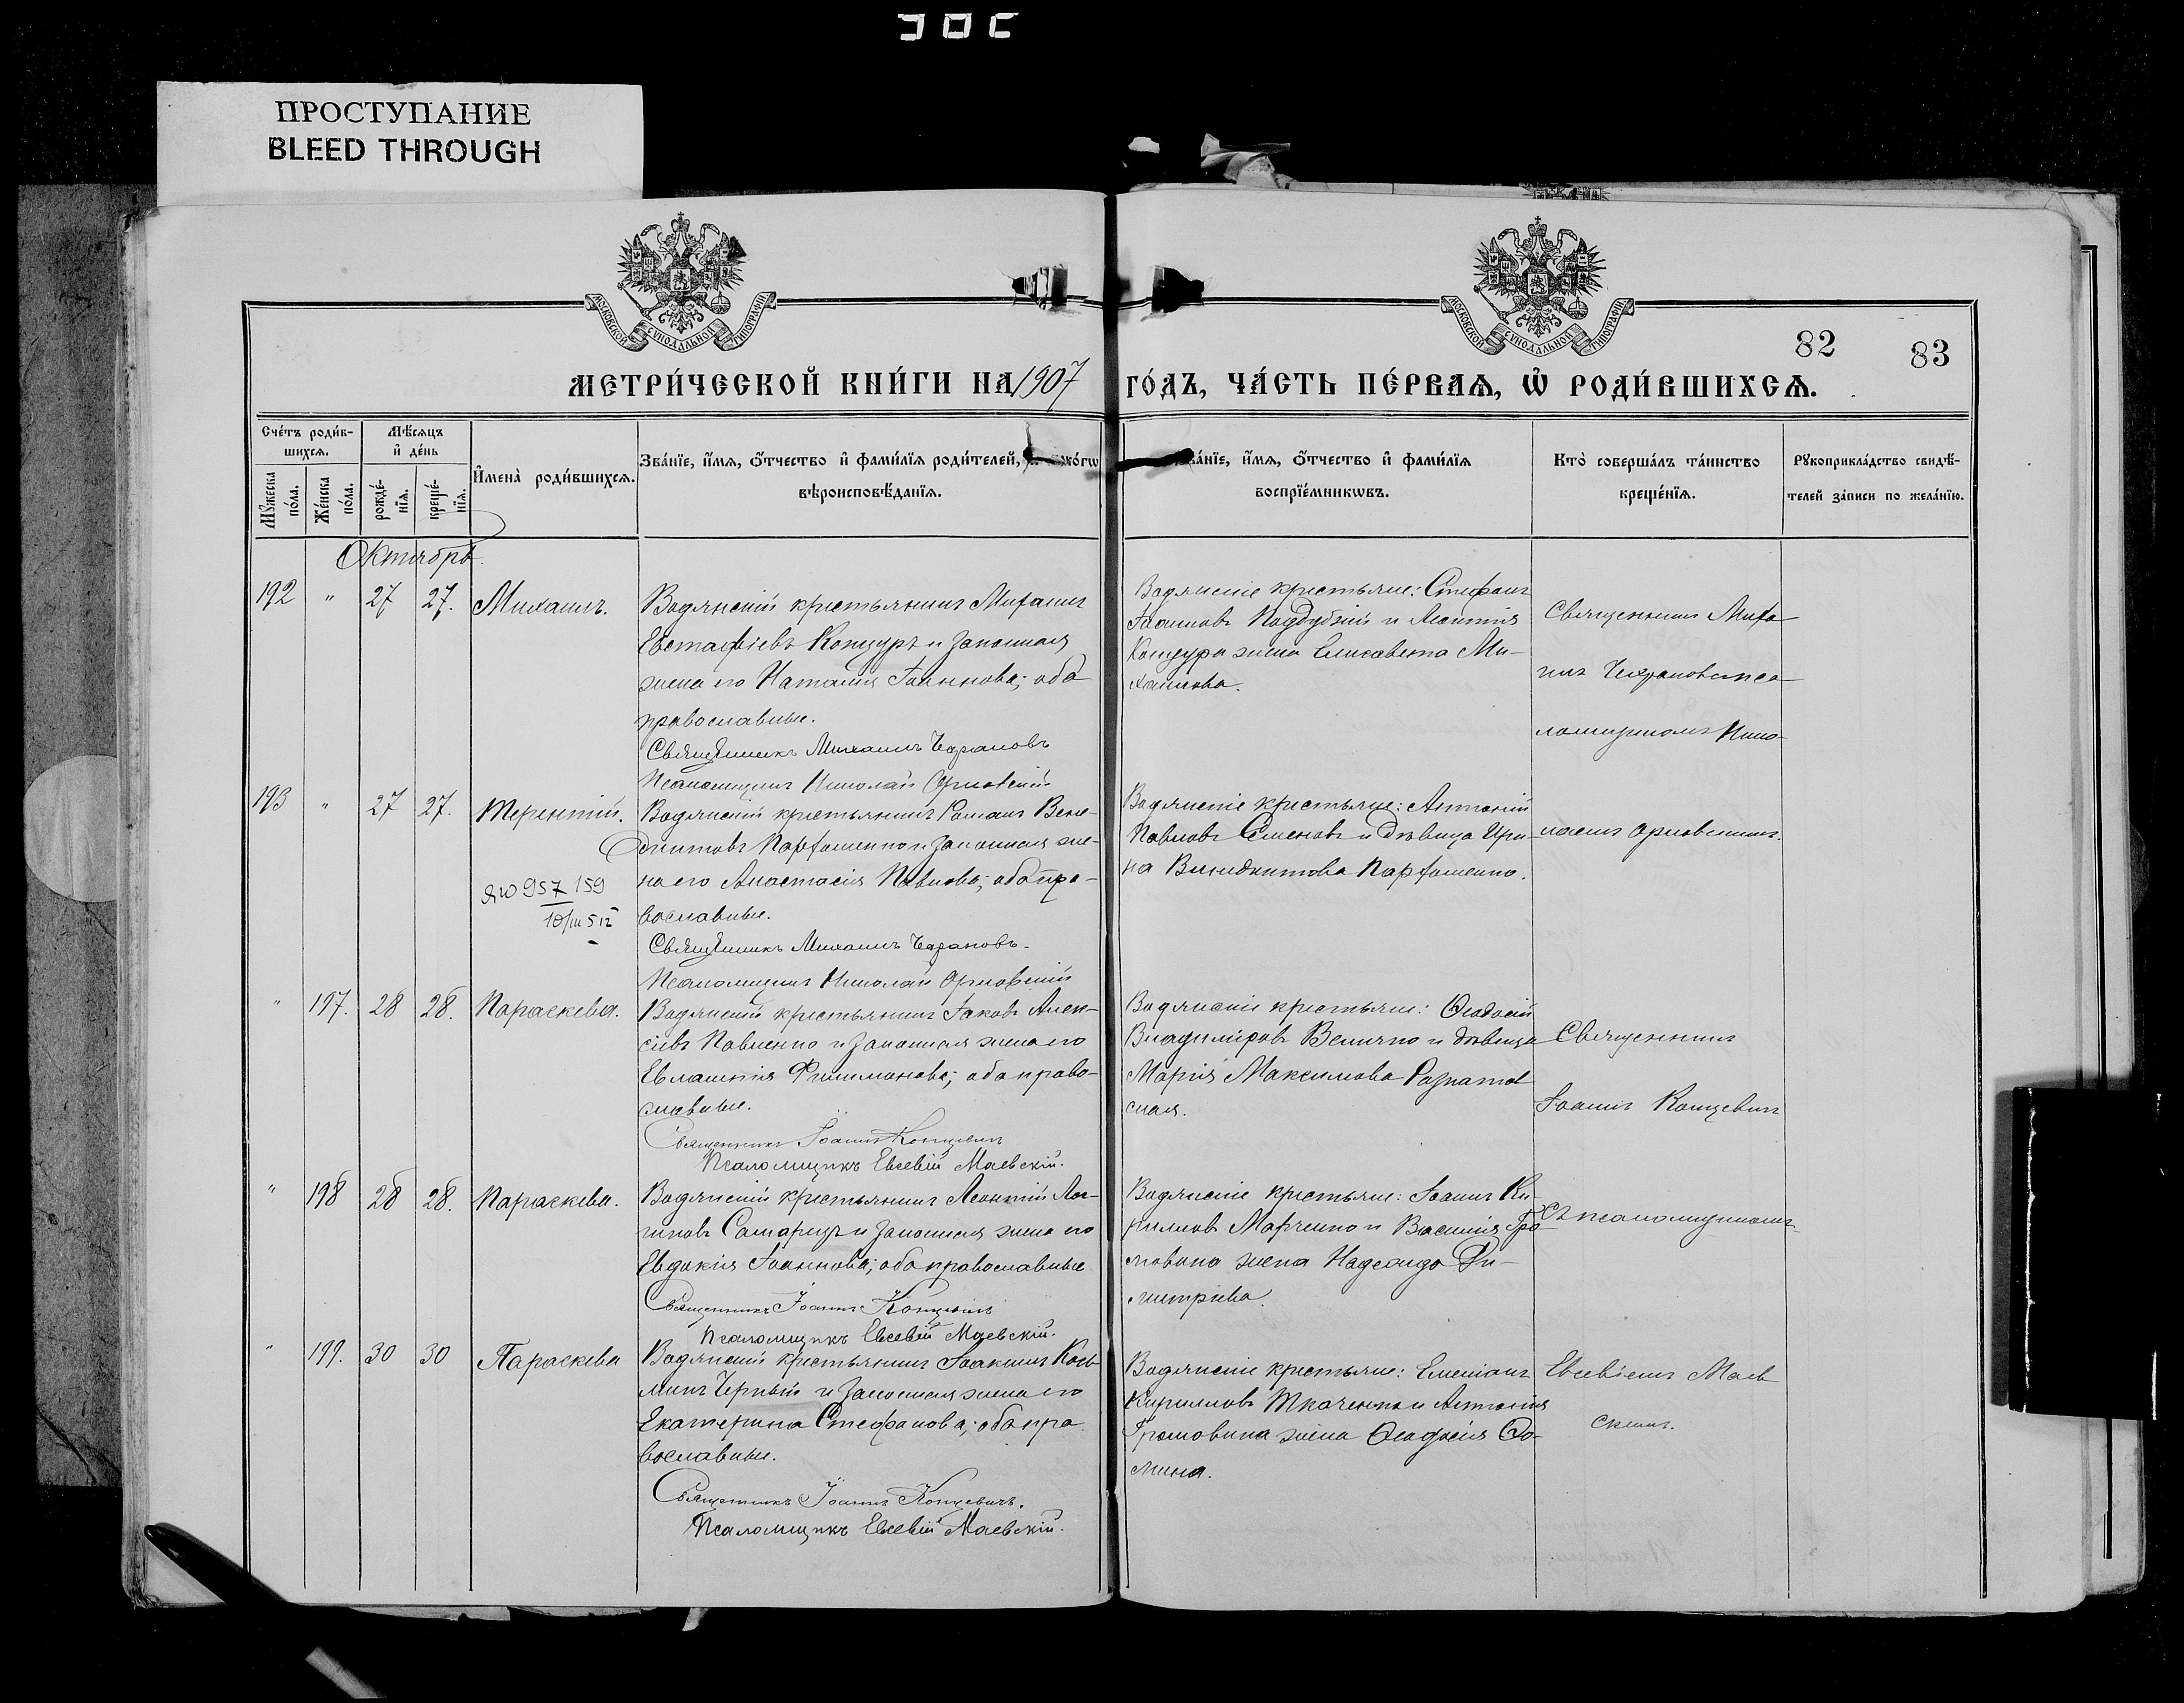 ПРОСТУПАНИЕ
BLEED THROUGH
МОСКОВСКОЙ СѴНОДАЛЬНОЙ ТИПОГРАФІИ
МОСКОВСКОЙ СѴНОДАЛЬНОЙ ТИПОГРАФІИ
82 83
МЕТРИ́ЧЕСКОЙ КНИ́ГИ НА 1907 ГО́ДЪ, ЧА́СТЬ ПЕ́РВАѦ, Ѡ РОДИ́ВШИХСѦ.
Сче́тъ роди́в-
шихсѧ.
Мѣ́сѧцъ
и де́нь
Мꙋжеска по́ла.
Же́нска по́ла.
рожде́-
нїѧ.
креще́-
нїѧ.
Имена̀ роди́вшихсѧ.
Зва́нїе, и́мѧ, ѻ́тчество и фами́лїѧ роди́телей,
вѣроисповѣ́данїѧ.
и́мѧ, ѻ́тчество и фами́лїѧ
воспрїе́мникωвъ.
Кто̀ соверша́лъ та́инство
креще́нїѧ.
Рꙋкоприкла́дство свидѣ́-
телей за́писи по жела́нїю.
Октябрь.
192 " 27 27. Михаилъ.
Водянскій крестьянинъ Михаилъ
Евстафіевъ Концуръ и законная
жена его Наталія Іоаннова; оба
православные.
Священникъ Михаилъ Чехрановъ
Псаломщикъ Николай Орловскій
Водянскіе крестьяне: Стефанъ
Іоанновъ Поддубный и Леонтія
Концура жена Елисавета Ми-
хаилова.
Священникъ Миха-
илъ Чехрановъ съ пса-
ломщикомъ Нико-
лаемъ Орловскимъ.
193 " 27 27. Терентій.
Водянскій крестьянинъ Романъ Вене-
диктовъ Парфоменко и законная же-
на его Анастасія Павлова; оба пра-
вославные.
957 159
Священникъ Михаилъ Чехрановъ.
Псаломщикъ Николай Орловскій
Водянскіе крестьяне: Антоній
Павловъ Семеновъ и дѣвица Ири-
на Венидиктова Парфоменко.
" 197. 28 28. Параскева.
Водянскій крестьянинъ Іаковъ Алек-
сіевъ Павленко и законная жена его
Евлампія Филимонова; оба право-
славные.
Священникъ Іоаннъ Концевичъ
Псаломщикъ Евсевій Маевскій.
Водянскіе крестьяне: Ѳеодосій
Владиміровъ Величко и дѣвица
Марія Максимова
Священникъ
Іоаннъ Концевичъ
" 198 28 28. Параскева.
Водянскій крестьянинъ Леонтій Лог-
гиновъ Самарецъ и законная жена его
Евдокія Іоаннова; оба православные
Священникъ Іоаннъ Концевичъ
Псаломщикъ Евсевій Маевскій.
Водянскіе крестьяне: Іоаннъ Ки-
рилловъ Марченко и Василія Гро-
мовика жена Надежда Ди-
митріева.
съ псаломщикомъ
" 199. 30 30 Параскева
Водянскій крестьянинъ Іоакимъ Козь-
минъ Черный и законная жена его
Екатерина Стефанова; оба пра
вославные.
Священникъ Іоаннъ Концевичъ.
Псаломщикъ Евсевій Маевскій.
Водянскіе крестьяне: Емеліанъ
Кирилловъ Ткаченко и Антонія
Громовика жена Ѳеодосія Ѳо-
мина.
Евсевіемъ Маев
скимъ.